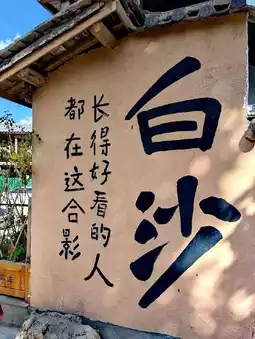 白沙
长得好看的人
都在这合影